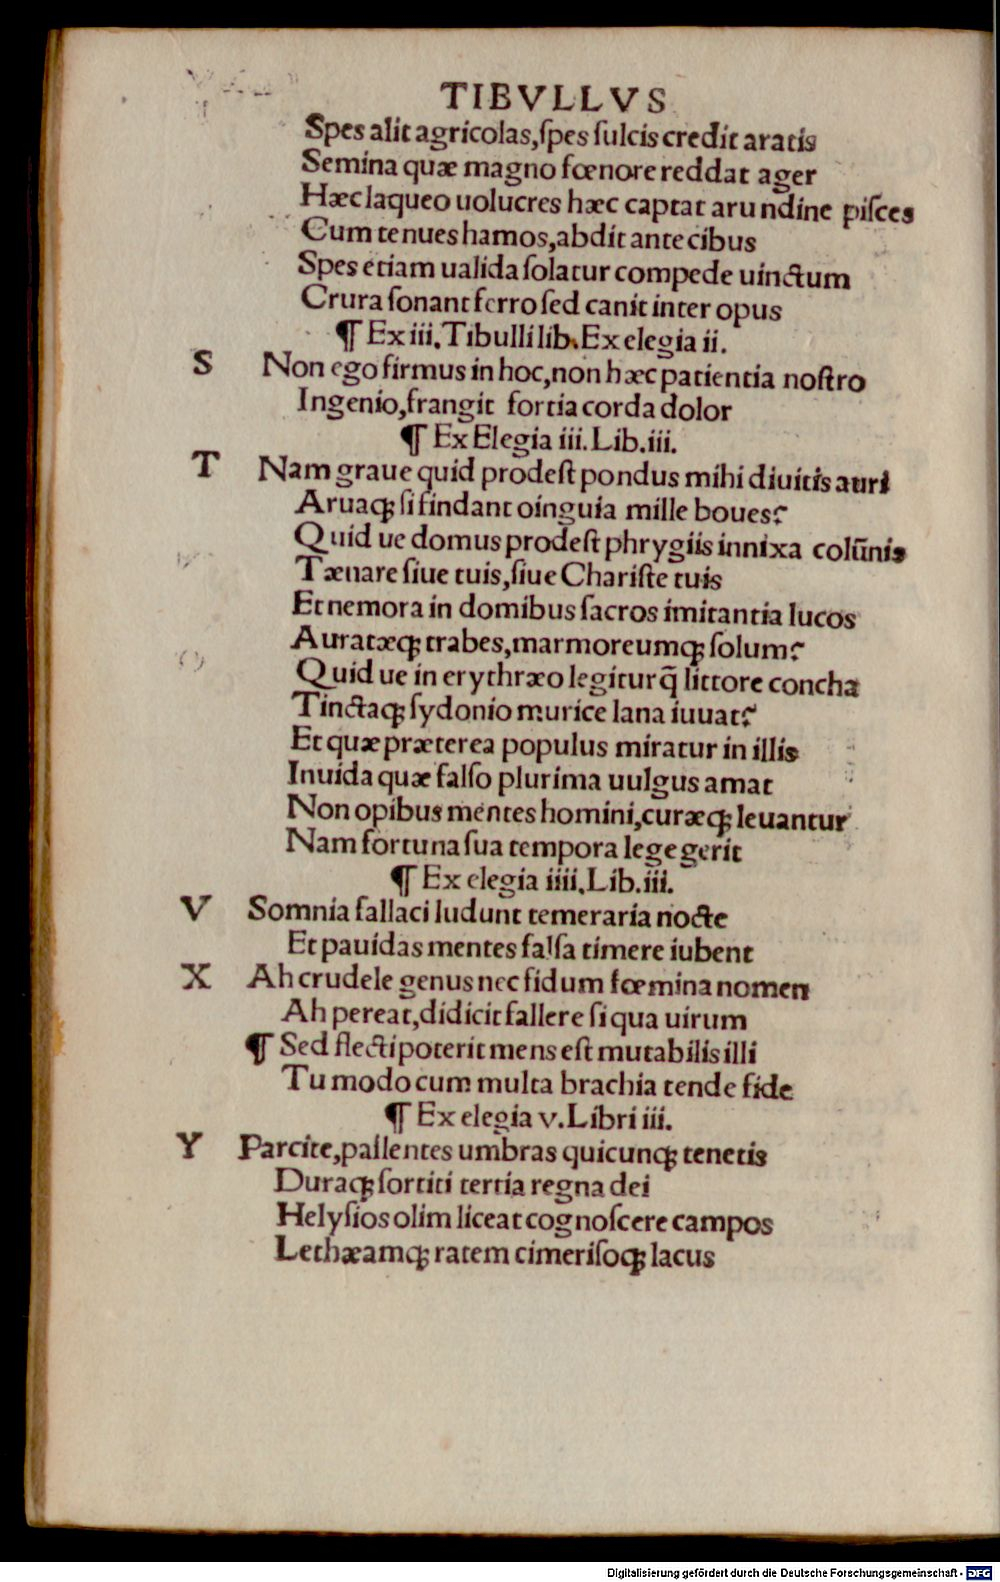 TIBVLLVS
Spes alit agricolas,ſpes ſulcis credit aratis
Semina quæ magno fœnore reddat ager
Hæc laqueo uolucres hæc captat arundine piſces
Cum tenues hamos,abdit ante cibus
Spes etiam ualida ſolatur compede uinctum
Crura ſonant ferro ſed canit inter opus
¶ Ex iii.Tibulli lib.Ex elegia ii.
S Non ego firmus in hoc,non hæc patientia noſtro
Ingenio,frangit fortia corda dolor
¶ Ex Elegia iii.Lib.iii.
T Nam graue quid prodeſt pondus mihi diuitis auri
Aruaq; ſi findant oinguia mille boues?
Quid ue domus prodeſt phrygiis innixa colūnis
Tænare ſiue tuis,ſiue Chariſte tuis
Et nemora in domibus ſacros imitantia lucos
Auratæq; trabes,marmoreumq; ſolum?
Quid ue in erythræo legitur q̄ littore concha
Tinctaq; ſydonio murice lana iuuat?
Et quæ præterea populus miratur in illis
Inuida quæ falſo plurima uulgus amat
Non opibus mentes homini,curæq; leuantur
Nam fortuna ſua tempora lege gerit
¶ Ex elegia iiii.Lib.iii.
V Somnia fallaci ludunt temeraria nocte
Et pauidas mentes falſa timere iubent
X Ah crudele genus nec fidum fœmina nomen
Ah pereat,didicit fallere ſi qua uirum
¶ Sed flecti poterit mens eſt mutabilis illi
Tu modo cum multa brachia tende fide
¶ Ex elegia v.Libri iii.
Y Parcite,pallentes umbras quicunq; tenetis
Duraq; ſortiti tertia regna dei
Helyſios olim liceat cognoſcere campos
Lethæamq; ratem cimeriſoq; lacus
Digitalisierung gefördert durch die Deutsche Forschungsgemeinschaft - DFG